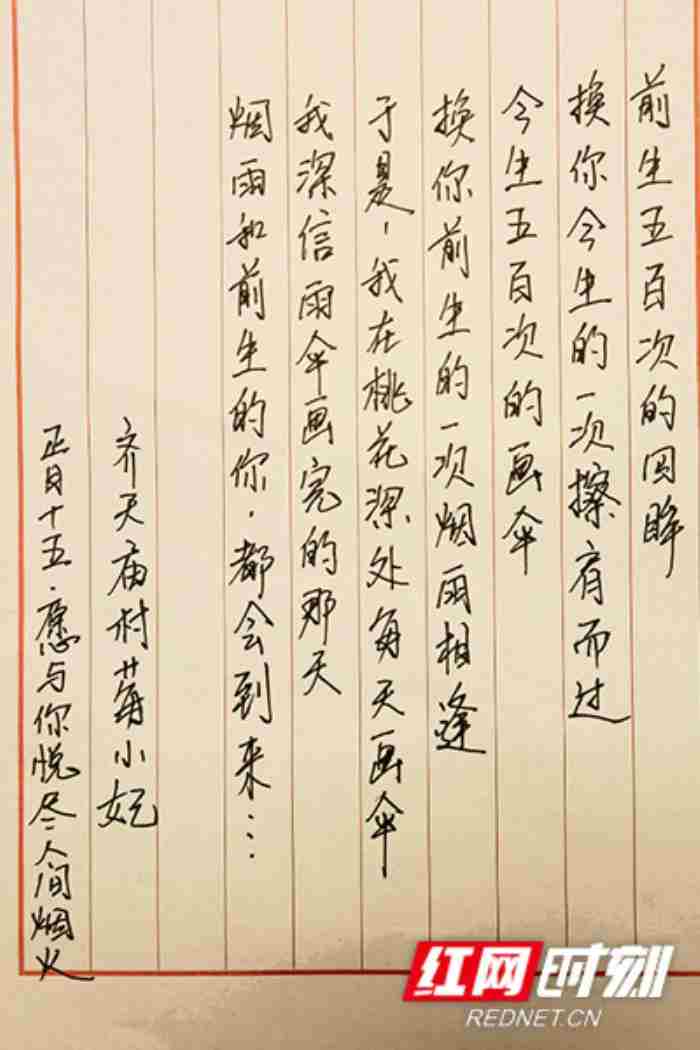 前生五百次的回眸
换你今生的一次擦肩而过
今生五百次的画伞
换你前生的一次烟雨相逢
于是，我在桃花深处每天画伞，
我深信雨伞画完的那天
烟雨和前生的你，都会到来…
齐天庙村莓小妃
正月十五·愿与你悦尽人间烟火
红网时刻
REDNET.CN